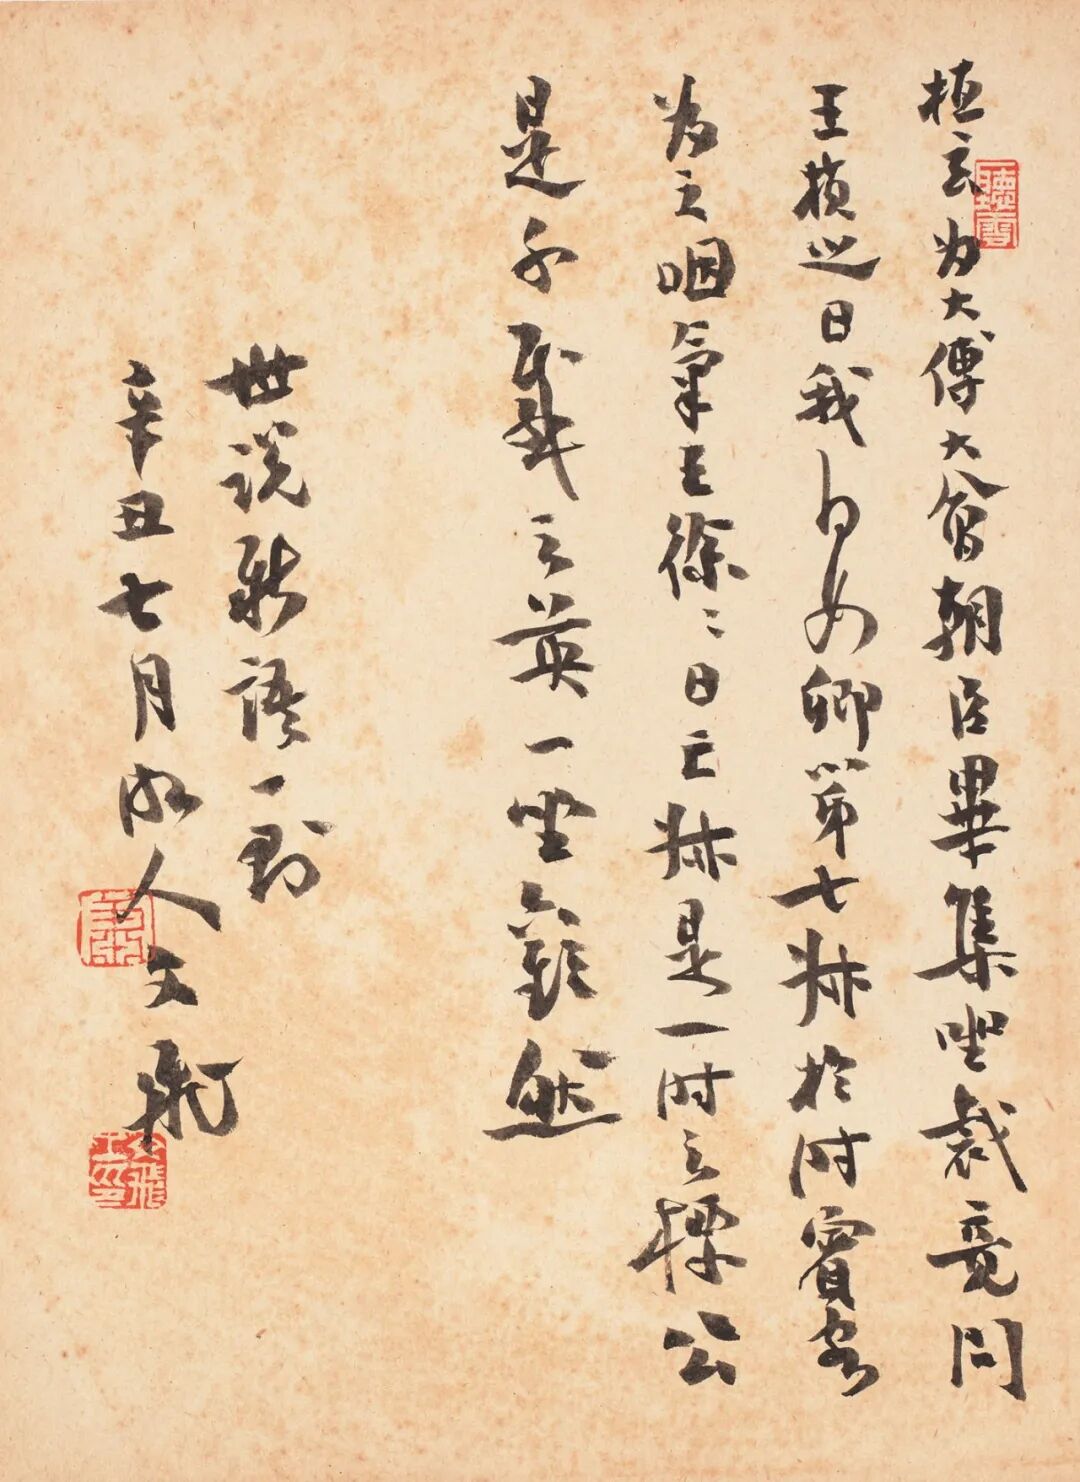 桓玄为大傅大會朝臣畢集坐裁竟問
王楨之曰我何如卿第七叔於时賓客
为之咽氣王徐〻曰亡叔是一时之標公
是千載之英一坐歡然
世说新語一則
辛丑七月 人文飛